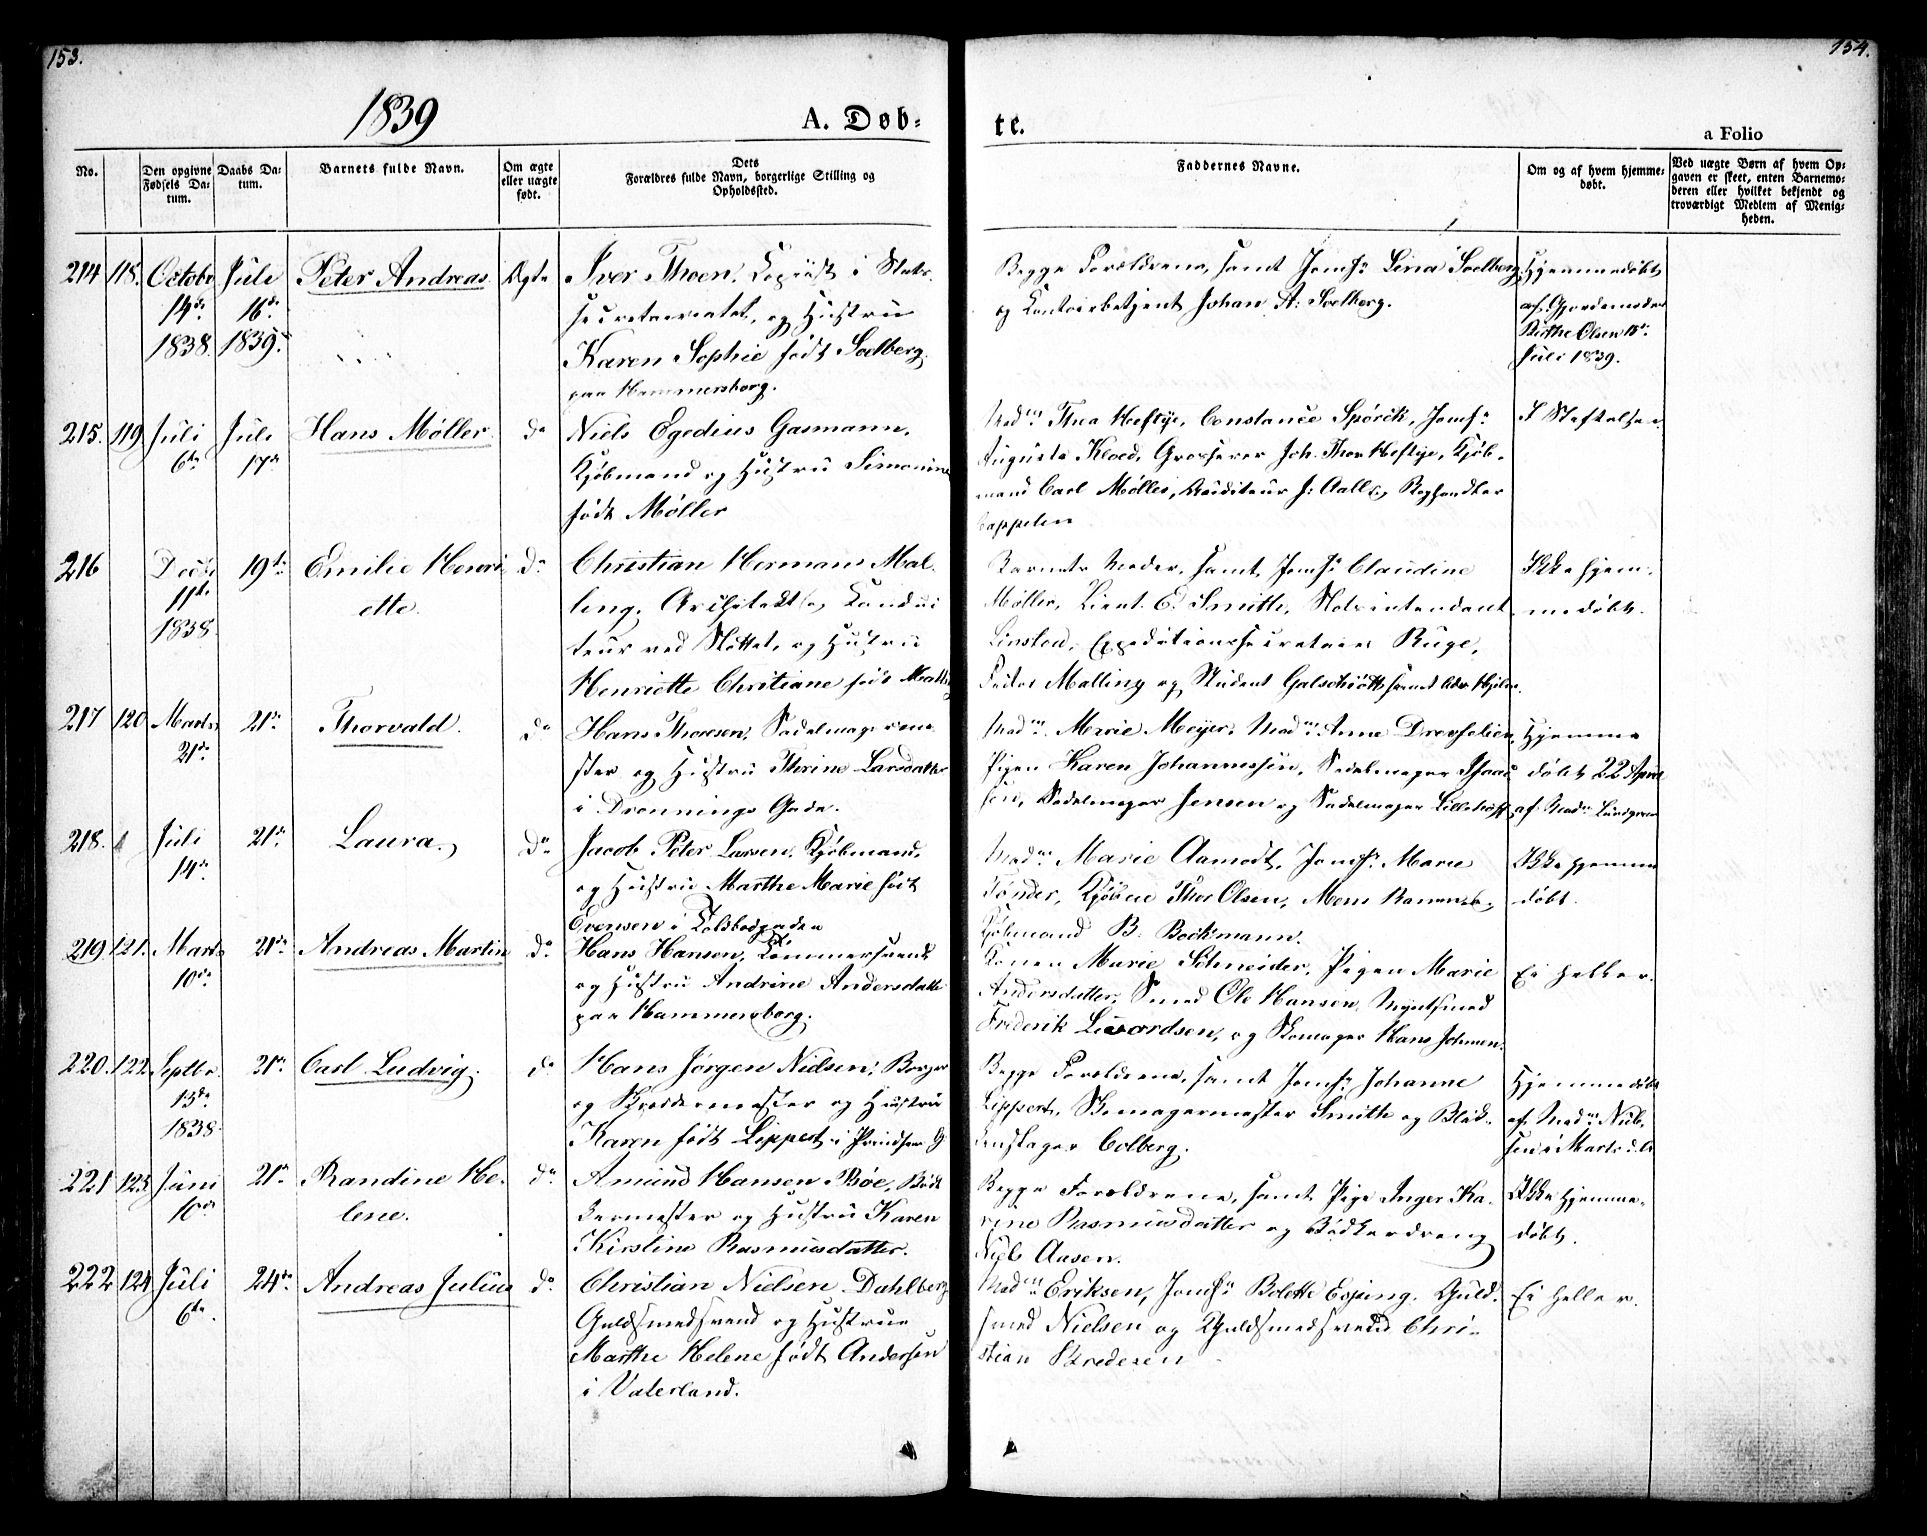 153.
154.
1839
A. Døb-
te.
a Folio
No.
Den opgivne Fødsels Datum.
Daabs Datum.
Barnets fulde Navn.
Om ægte eller uægte født.
Dets Forældres fulde Navn, borgerlige Stilling og Opholdssted.
Faddernes Navne.
Om og af hvem hjemmedøbt.
Ved uægte Børn af hvem Opgaven er skeet, enten Barnemoderen eller hvilket bekjendt og troværdigt Medlem af Menigheden.
214 118. Octobr 14de 1838. Juli 16de 1839. Peter Andreas Ægte
Iver Thoen, Copiist i Stats-
secretariatet, og Hustru
Karen Sophie født Soelberg.
paa Hammersborg.
Begge Forældrene, samt Jomfr Lina Soelberg
og Contoirbetjent Johan A. Soelberg.
Hjemmedøbt
af Gjordemoder
Birthe Olsen
Juli 1839.
215. 119 Juli 6te Juli 17de Hans Møller do
Niels Egedius Gasmann,
Kjøbmand og Hustru Simonine
født Møller
Madm Thea Heftye, Constance Spörck, Jomfr
Augusta Kloed, Grosserer Joh. Thor Heftye, Kjøb-
mand Carl Møller, Auditeur J: Aall, Boghandler
Cappelen
I Stiftelsen
216 Decbr 11te 1838. 19de Emilie Henri-
ette. do
Christian Hermann Mal-
ling, Architekt, Conduc-
teur ved Slottet, og Hustru
Henriette Christiane født Malling
Barnets Moder, samt Jomfr Claudine
Møller, Lieut. E. Smith, Slotsintendant
Linstod, Expeditionssecretair Ruge,
Peder Malling og Student Galschiøtt
Ikke hjem-
medøbt.
217 120 Marts 21de 21de Thorvald. do
Hans Thoresen, Sadelmagerme-
ster og Hustru Thrine Larsdatter
i Dronnings Gade.
Madm Marie Meyer, Madm Anne
Pigen Karen Johannessen, Sadelmager Isaac-
sen, Sadelmager Jensen og Sadelmager
Hjemme
døbt 22 April
af Madm Lundgreen
218. Juli 14de 21de Laura. do
Jacob Peter Larsen, Kjøbmand,
og Hustru Marthe Marie født
Evensen i Toldbodgaden
Madm Marie Aamodt, Jomfr Marie
Tønder, Thor Olsen,
Kjøbmand B. Bockmann.
Ikke hjemme
døbt.
219 121. Marts 10de 21de Andreas Martin do
Hans Hansen, Tømmersvend
og Hustru Andrine Andersdatter
paa Hammersborg.
Konen Marie Schneider, Pigen Marie
Andersdatter, Smed Ole Hansen, Myntsmed
Frederik og Skomager Hans Johnsen.
Ei heller.
220. 122 Septbr 13de 1838. 21de Carl Ludvig. do
Hans Jørgen Nielsen, Borger
og Skræddermester og Hustru
Karen født Lippert i Prindsens G.
Begge Forældrene, samt Jomfr Johanne
Lippert, Skomagermester Smith og Blik-
kenslager Colberg.
Hjemmedøbt
af Madm Niel-
sen i Marts
221 123 Juni 10de 21de Randine He-
lene. do
Amund Hansen Bøe, Bød-
kermester og Hustru Karen
Kirstine Rasmusdatter.
Begge Forældrene, samt Pige Inger Ka-
rine Rasmusdatter og Bødkerdreng
Niels Aasen.
Ikke hjemme-
døbt.
222 124 Juli 6te 24de Andreas Julius do
Christian Nielsen Dahlberg
Guldsmedsvend og Hustrue
Marthe Helene født Andersen
i Vaterland.
Madm Eriksen, Jomfr Bolette Esping, Guld-
smed Nielsen og Guldsmedsvend Chri-
stian Skredesen
Ei heller.